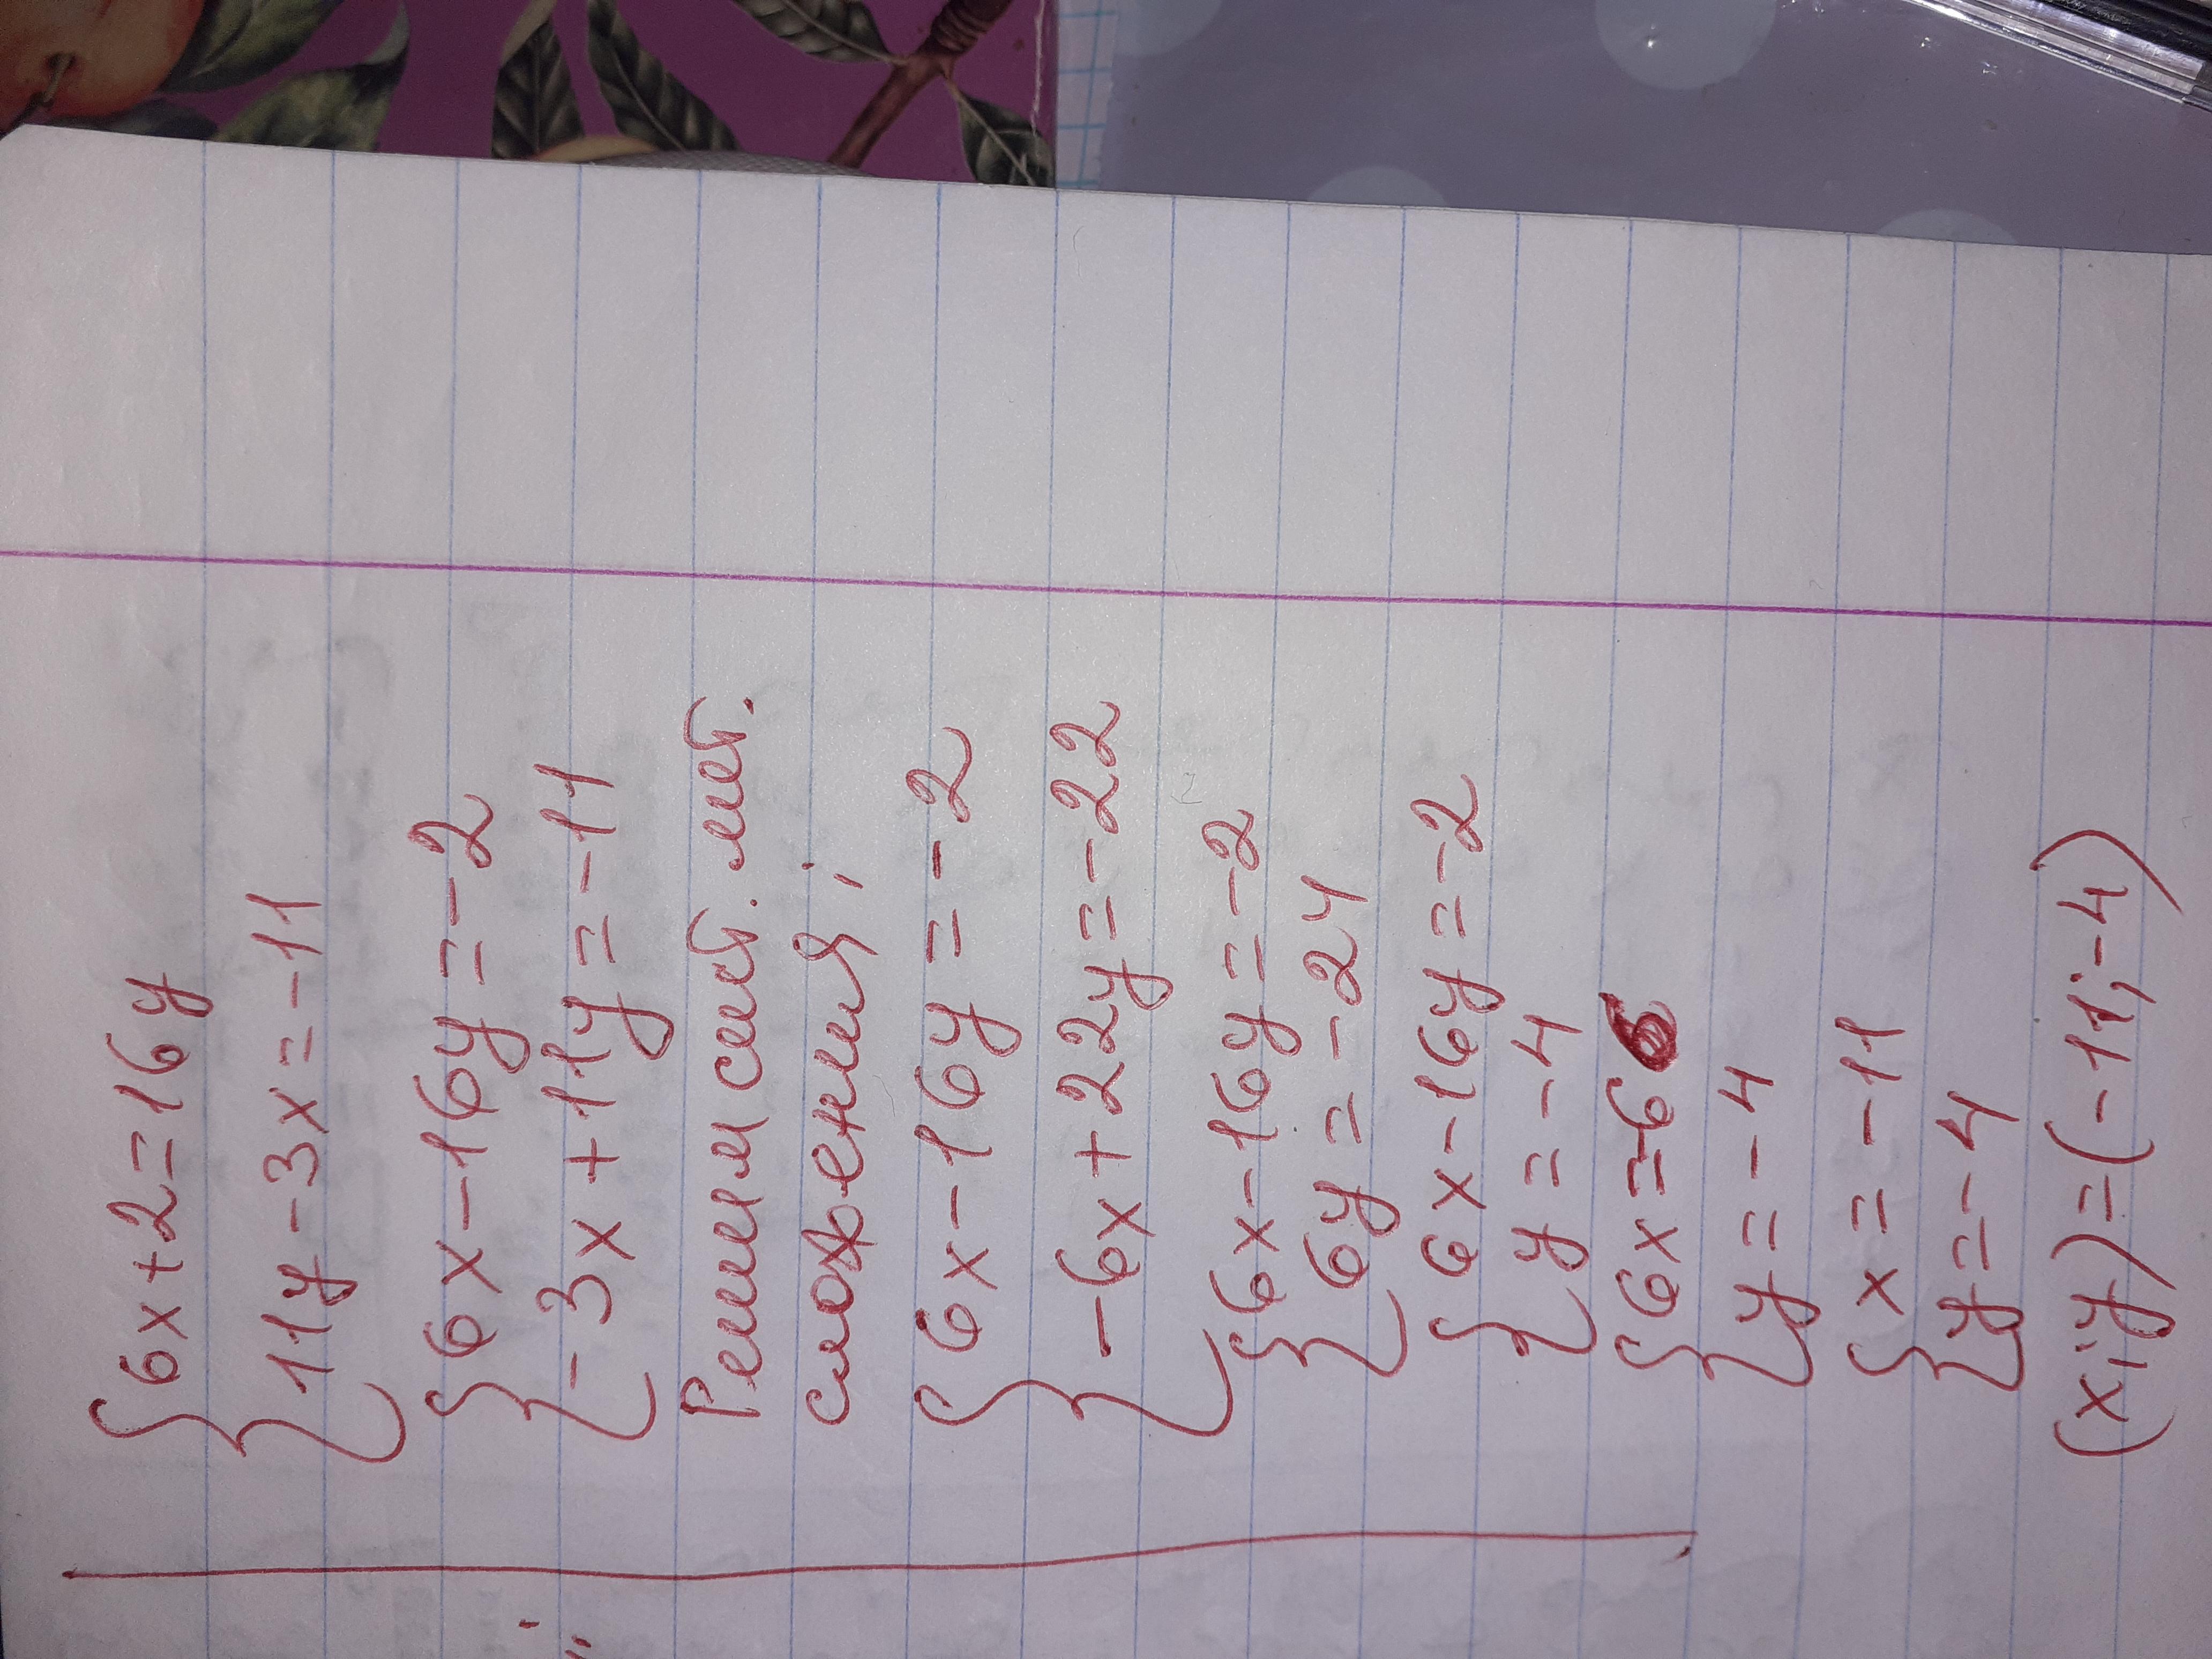 {6x+2=16y
{11y-3x=-11
{6x-16y=-2
{-3x+11y=-11
Решим сист. мет.
сложения;
{6x-16y=-2
{-6x+22y=-22
{6x-16y=-2
{6y=-24
{6x-16y=-2
{y=-4
{6x=-66
{y=-4
{x=-11
{y=-4
(x;y)=(-11;-4)